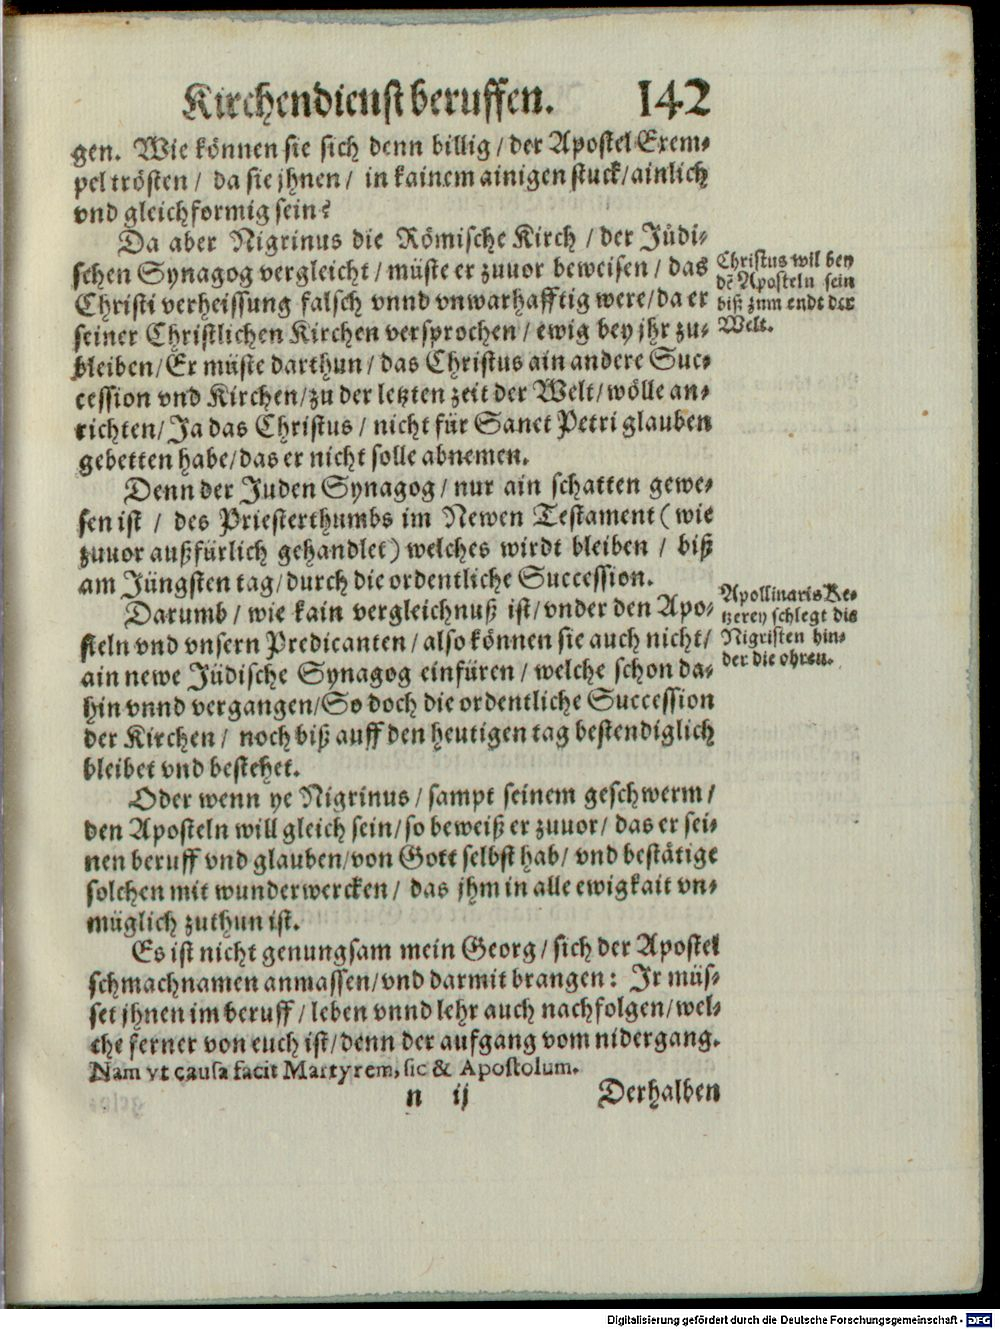 Kirchendienst beruffen. 142
gen. Wie können sie sich denn billig / der Apostel Exem-
pel trösten / da sie jhnen / in kainem ainigen stuck / ainlich
vnd gleichformig sein?
Da aber Nigrinus die Römische Kirch / der Jüdi-
schen Synagog vergleicht / müste er zuuor beweisen / das
Christi verheissung falsch vnnd vnwarhafftig were / da er
seiner Christlichen Kirchen versprochen / ewig bey jhr zu-
bleiben / Er müste darthun / das Christus ain andere Suc-
cession vnd Kirchen / zu der letzten zeit der Welt / wölle an-
richten / Ja das Christus / nicht für Sanct Petri glauben
gebetten habe / das er nicht solle abnemen.
Christus wil bey
dẽ Aposteln sein
biß zum endt der
Welt.
Denn der Juden Synagog / nur ain schatten gewe-
sen ist / des Priesterthumbs im Newen Testament (wie
zuuor außfürlich gehandlet) welches wirdt bleiben / biß
am Jüngsten tag / durch die ordentliche Succession.
Darumb / wie kain vergleichnuß ist / vnder den Apo-
steln vnd vnsern Predicanten / also können sie auch nicht /
ain newe Jüdische Synagog einfüren / welche schon da-
hin vnnd vergangen / So doch die ordentliche Succession
der Kirchen / noch biß auff den heutigen tag bestendiglich
bleibet vnd bestehet.
Apollinaris Ke-
tzerey schlegt die
Nigristen hin-
der die ohren.
Oder wenn ye Nigrinus / sampt seinem geschwerm /
den Aposteln will gleich sein / so beweiß er zuuor / das er sei-
nen beruff vnd glauben / von Gott selbst hab / vnd bestätige
solchen mit wunderwercken / das jhm in alle ewigkait vn-
müglich zuthun ist.
Es ist nicht genungsam mein Georg / sich der Apostel
schmachnamen anmassen / vnd darmit brangen: Ir müs-
set jhnen im beruff / leben vnnd lehr auch nachfolgen / wel-
che ferner von euch ist / denn der aufgang vom nidergang.
Nam vt causa facit Martyrem, sic & Apostolum.
n ij Derhalben
Digitalisierung gefördert durch die Deutsche Forschungsgemeinschaft - DFG